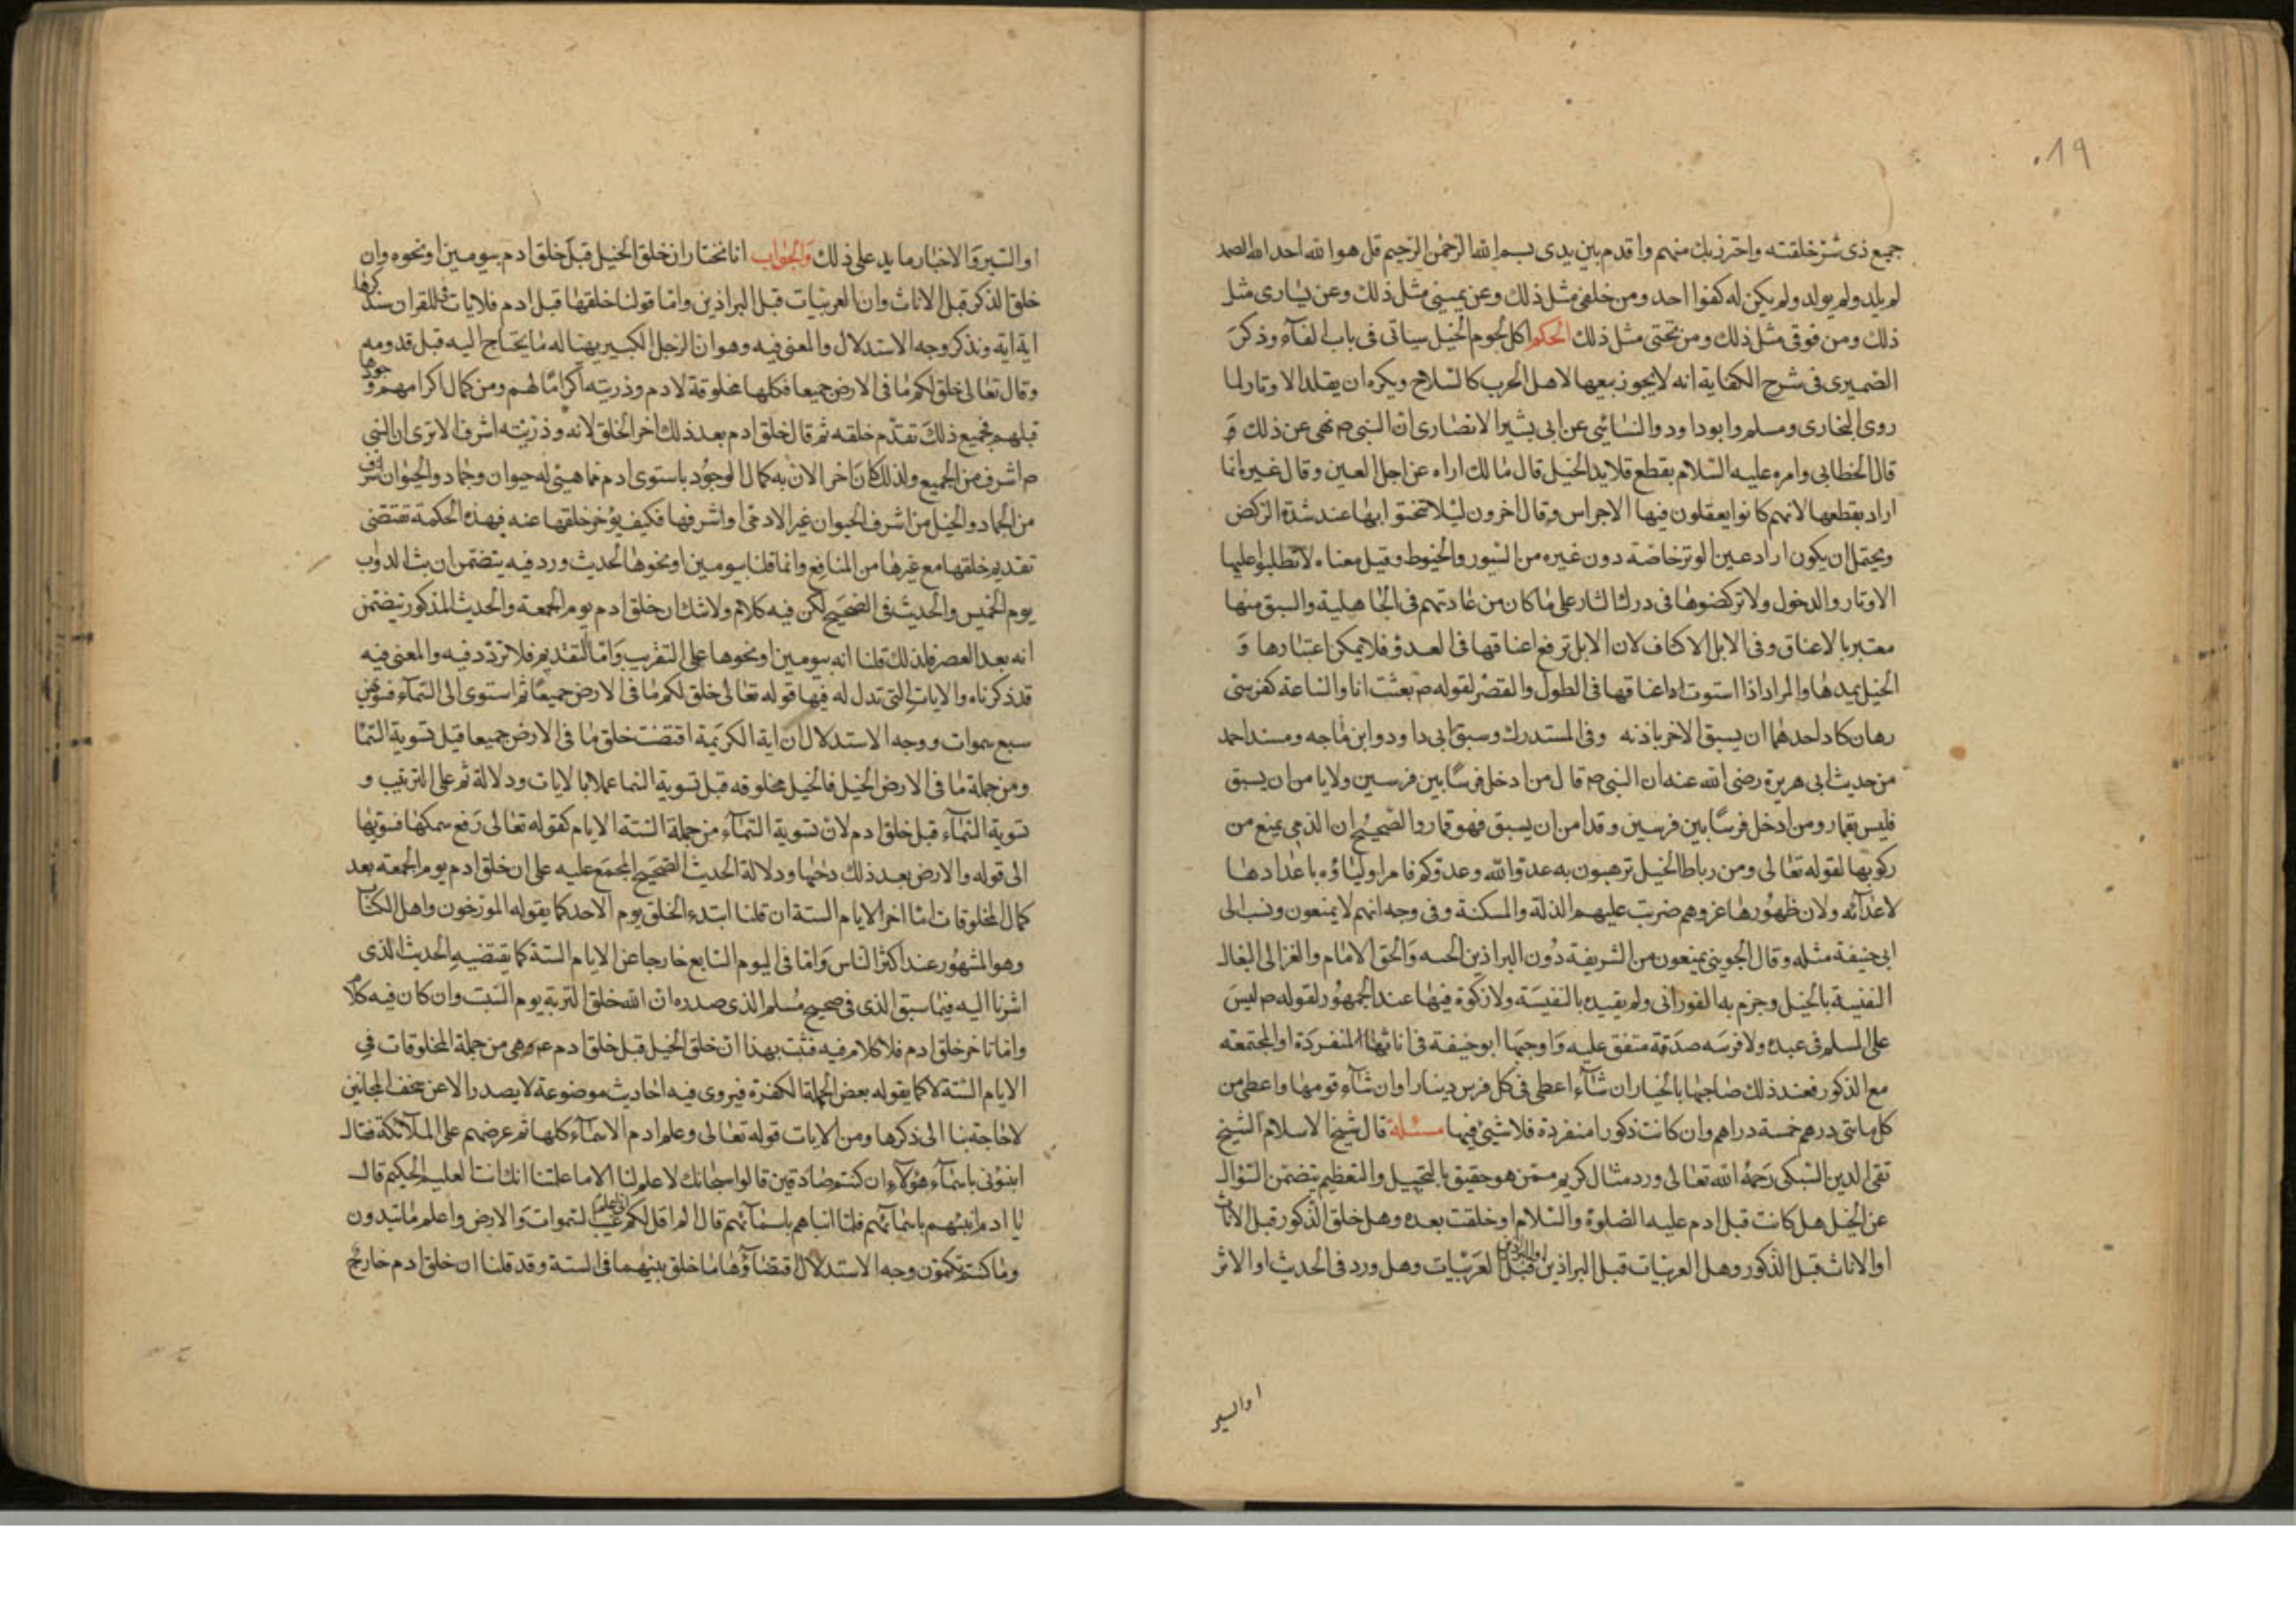 ٠١٩
جميع ذى شر خلقته واحترز بك منهم واقدم بين يدى بسم الله الرحمن الرحيم قل هو الله احد الله الصمد
لم يلد ولم يولد ولم يكن له كفوا احد ومن خلفى مثل ذلك وعن يمينى مثل ذلك وعن يسارى مثل
ذلك ومن فوقى مثل ذلك ومن تحتى مثل ذلك الحكم اكل لحوم الخيل سياتى فى باب الفآء وذكر
الضميرى فى شرح الكفاية انه لا يجوز بيعها لاهل الحرب كالسلاح ويكره ان يقلد الاوتار لما
روى البخارى ومسلم وابو داود والنسائى عن ابى بشير الانصارى ان النبى م نهى عن ذلك و
قال الخطابى وامره عليه السلام بقطع قلايد الخيل قال مالك اراه عن اجل العين وقال غيره انما
اراد بقطعها لانهم كانوا يعقلون فيها الاجراس وقال اخرون ليلا تختنق ابها عند شدة الركض
ويحتمل ان يكون اراد عين الوتر خاصة دون غيره من السيور والخيوط وقيل معناه لا تطلبوا عليها
الاوتار والدخول ولا تركضوها فى درك الثار على ما كان من عادتهم فى الجاهلية والسبق منها
معتبر بالاعناق وفى الابل الاكتاف لان الابل ترفع اعناقها فى العدو فلا يمكن اعتبارها و
الخيل يمدها والمراد اذا استوت اداعناقها فى الطول والقصر لقوله م بعثت انا والساعة كفرسى
رهان كاد احدهما ان يسبق الاخر باذنه وفى المستدرك وسبق ابى داود وابن ماجه ومسند احمد
من حديث ابى هريرة رضى الله عنه ان النبى م قال من ادخل فرسا بين فرسين ولا يامن ان يسبق
فليس بقمار ومن ادخل فرسا بين فرسين وقد امن ان يسبق فهو قمار والصحيح ان الذمى يمنع من
ركوبها لقوله تعالى ومن رباط الخيل ترهبون به عدو الله وعدوكم فامر اولياؤه باعدادها
لاعدآئه ولان ظهورها عز وهم ضربت عليهم الذلة والمسكنة وفى وجه انهم لا يمنعون ونسب الى
ابى حنيفة مثله وقال الجوينى يمنعون من الشريفة دون البراذين الحسه والحق الامام والغزالى البغال
النفيسة بالخيل وجزم به الفورانى ولم يقيده بالنفيسة ولا زكوة فيها عند الجمهور لقوله م ليس
على المسلم فى عبده ولا فرسه صدقة متفق عليه واوجبها ابو حنيفة فى اناثها المنفردة او المجتمعه
مع الذكور فعند ذلك صاحبها بالخيار ان شآء اعطى فى كل فرس دينارا وان شآء قومها واعطى من
كل ماتى درهم خمسة دراهم وان كانت ذكورا منفردة فلا شيئ فيها مسئلة قال شيخ الاسلام الشيخ
تقى الدين السبكى رحمه الله تعالى ورد مثال كريم ممن هو حقيق بالتبجيل والتعظيم يتضمن السؤال
عن الخيل هل كانت قبل ادم عليه الصلوة والسلام او خلقت بعده وهل خلق الذكور قبل الاناث
او الاناث قبل الذكور وهل العربيات قبل البراذين او البراذين قبل العربيات وهل ورد فى الحديث او الاثر
او السير
او السير والاخبار ما يدل على ذلك والجواب انا نختار ان خلق الخيل قبل خلق ادم بيومين او نحوه وان
خلق الذكر قبل الاناث وان العربيات قبل البراذين واما قولنا خلقها قبل ادم فلايات فى القران سنذكرها
اية اية ونذكر وجه الاستدلال والمعنى فيه وهو ان الرجل الكبير يهيئا له ما يحتاج اليه قبل قدومه
وقال تعالى خلق لكم ما فى الارض جميعا فكلها مخلوقة لادم وذريته اكراما لهم ومن كمال اكرامهم وجودها
قبلهم فجميع ذلك تقدم خلقه ثم قال خلق ادم بعد ذلك اخر الخلق لانه وذريته اشرف الا ترى ان النبى
م اشرف من الجميع ولذلك كان اخر الان به كمال الوجود باستوى ادم مما هيئ له حيوان وجماد والحيوان اشرف
من الجماد والخيل من اشرف الحيوان غير الادمى او اشرفها فكيف يوخر خلقها عنه فهذه الحكمة تقتضى
تقديم خلقها مع غيرها من المنافع وانما قلنا بيومين او نحوها لحديث ورد فيه يتضمن ان بث الدواب
يوم الخميس والحديث فى الصحيح لكن فيه كلام ولا شك ان خلق ادم يوم الجمعة والحديث المذكور يتضمن
انه بعد العصر فلذلك قلنا انه بيومين او نحوها على التقريب واما التقديم فلا تردد فيه والمعنى فيه
قد ذكرناه والايات التى تدل له فيها قوله تعالى خلق لكم ما فى الارض جميعا ثم استوى الى السمآء فسويهن
سبع سموات ووجه الاستدلال ان اية الكريمة اقتضت خلق ما فى الارض جميعا قبل تسوية السما
ومن جملة ما فى الارض الخيل فالخيل مخلوقه قبل تسوية السما عملا بالايات ودلالة ثم على الترتيب و
تسوية السمآء قبل خلق ادم لان تسوية السمآء من جملة الستة الايام كقوله تعالى رفع سمكها فسويها
الى قوله والارض بعد ذلك دحيها ودلالة الحديث الصحيح المجمع عليه على ان خلق ادم يوم الجمعه بعد
كمال المخلوقات اما اخر الايام الستة ان قلنا ابتدء الخلق يوم الاحد كما يقوله المورخون واهل الكتاب
وهو المشهور عند اكثر الناس واما فى اليوم السابع خارجا عن الايام الستة كما يقتضيه الحديث الذى
اشرنا اليه فيما سبق الذى فى صحيح مسلم الذى صدره ان الله خلق التربة يوم السبت وان كان فيه كلام
واما تاخر خلق ادم فلا كلام فيه فثبت بهذا ان خلق الخيل قبل خلق ادم عم وهى من جملة المخلوقات فى
الايام الستة لا كما يقوله بعض الجهلة الكفرة فيروى فيه احاديث موضوعة لا يصدر الا عن سخف المجانين
لا حاجة بنا الى ذكرها ومن الايات قوله تعالى وعلم ادم الاسمآء كلها ثم عرضهم على الملآئكة فقال
انبئونى باسمآء هؤلآء ان كنتم صادقين قالوا سبحانك لا علم لنا الا ما علمتنا انك انت العليم الحكيم قال
يا ادم انبئهم باسمآئهم فلما انباهم باسمآئهم قال الم اقل لكم انى اعلم غيب السموات والارض واعلم ما تبدون
وما كنتم تكتمون وجه الاستدلال اقتضآؤها ما خلق بينهما فى الستة وقد قلنا ان خلق ادم خارج